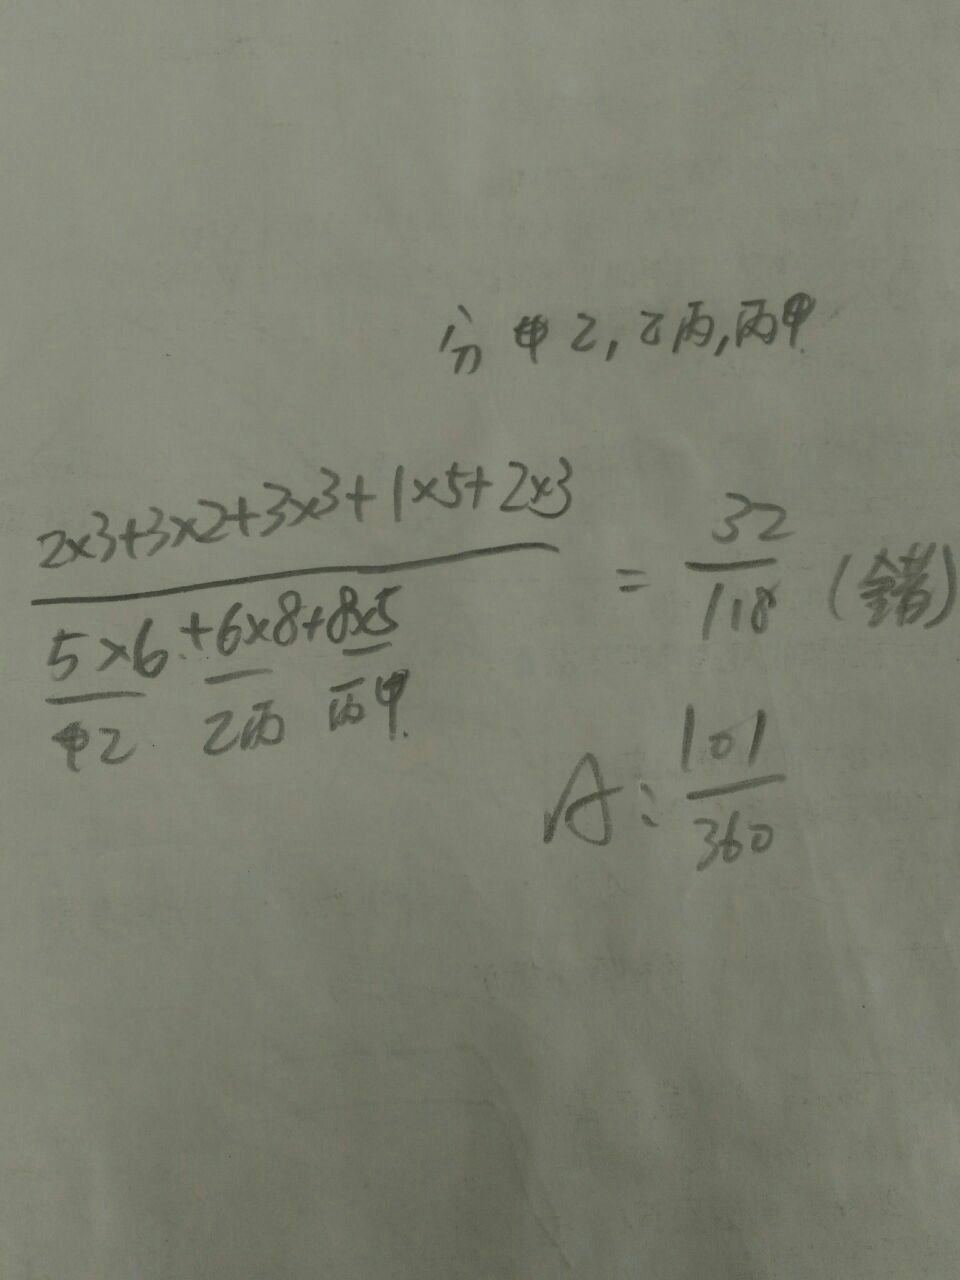 分甲乙,乙丙,丙甲
2×3+3×2+3×3+1×5+2×3
5×6+6×8+8×5
= 32/118 (錯)
甲乙 乙丙 丙甲
A: 101/360